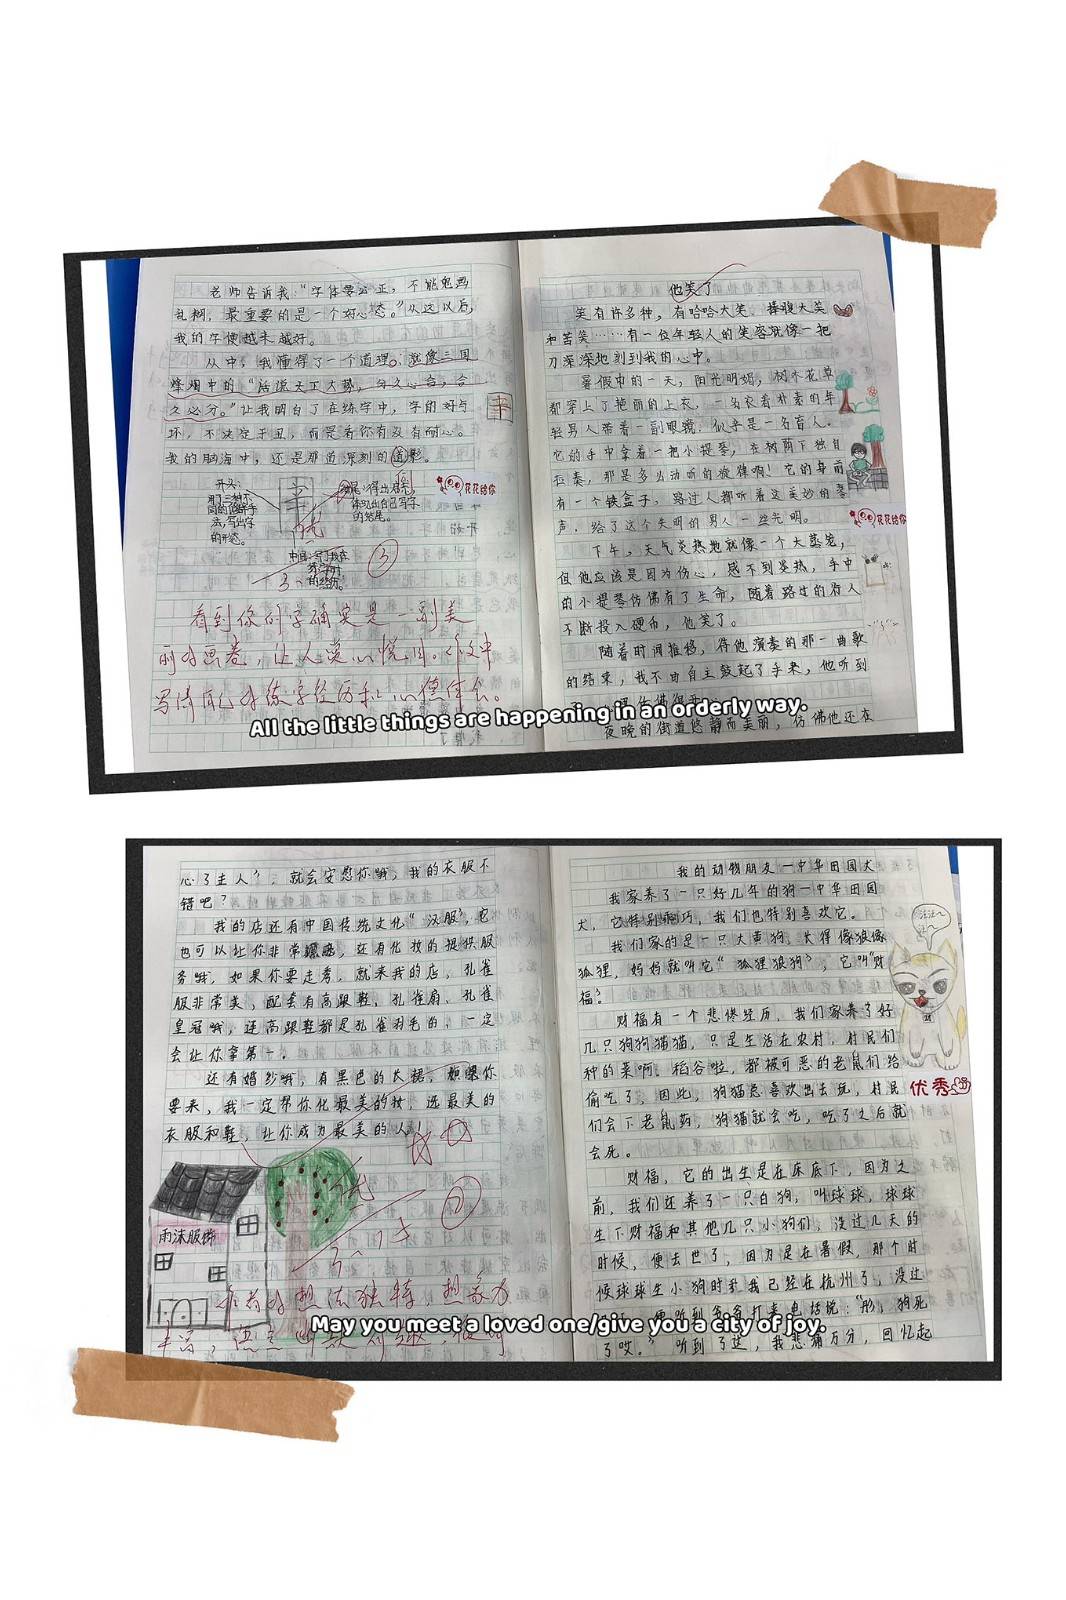 老师告诉我:"字体要公正,不能鬼画
乱糊,最重要的是一个好心态。"从这以后,
我的字便越来越好。
从中,我懂得了一个道理。就像三国
烽烟中的"话说天下大势,分久必合,合
久必分。"让我明白了在练字中,字的好与
坏,不决定于丑,而是看你有没有耐心。
我的脑海中,还是那道深刻的道影。
花花给你
开头:
用了三种不
同的
法,写出字
的形态。
结尾:得出启示,
体现出自己写字
的结尾。
中间:写了我在
练字时
的经历。
优
看到你的字确实是一副美
丽的画卷,让人赏心悦目。作文中
写清自己的练字经历和心得体会。
他笑了
笑有许多种,有哈哈大笑、捧腹大笑
和苦笑……有一位年轻人的笑容就像一把
刀深深地刻到我的心中。
暑假中的一天,阳光明媚,树木花草
都穿上了艳丽的上衣,一名衣着朴素的年
轻男人带着一副眼镜,似乎是一名盲人。
它的手中拿着一把小提琴,在树荫下独自
拉奏,那是多么动听的旋律啊!它的身前
有一个铁盒子,路过人都听着这美妙的琴
声,给了这个失明的男人一丝光明。
花花给你
下午,天气炎热地就像一个大蒸笼,
但他应该是因为伤心,感不到炎热,手中
的小提琴仿佛有了生命,随着路过的行人
不断投入硬币,他笑了。
随着时间推移,待他演奏的那一曲歌
的结束,我不由自主鼓起了手来,他听到
All the little things are happening in an orderly way.
夜晚的街道悠静而美丽,仿佛他还在
心了主人?,就会安慰你哦,我的衣服不
错吧?
我的店还有中国传统文化"汉服",它
也可以让你非常,还有化妆的提供服
务哦,如果你要走秀,就来我的店,孔雀
服非常美,配套有高跟鞋,孔雀扇、孔雀
皇冠哦,连高跟鞋都是孔雀羽毛的,一定
会让你拿第一。
还有婚纱哦,有黑色的大裙,如果你
要来,我一定帮你化最美的妆,选最美的
衣服和鞋,让你成为最美的人!
优
雨沫服饰
作者的想法独特,想象力
丰富,
我的动物朋友—中华田园犬
我家养了一只好几年的狗—中华田园
犬,它特别乖巧,我们也特别喜欢它。
我们家的是一只大黄狗,长得像狼像
狐狸,妈妈就叫它"狐狸狼狗",它叫"财
福"。
汪汪~
汪~
财福有一个悲惨经历,我们家养了好
几只狗狗猫猫,只是生活在农村,村民们
种的菜啊,稻谷啦,都被可恶的老鼠们给
偷吃了,因此,狗猫总喜欢出去玩,村民
优秀
们会下老鼠药,狗猫就会吃,吃了之后就
会死。
财福,它的出生是在床底下,因为之
前,我们还养了一只白狗,叫球球,球球
生下财福和其他几只小狗们,没过几天的
时候,便去世了,因为是在暑假,那个时
候球球生小狗时我我已经在杭州了,没过
便听到爸爸打来电话说:"彤,狗死
May you meet a loved one/give you a city of joy.
了哎。"听到了这,我悲痛万分,回忆起